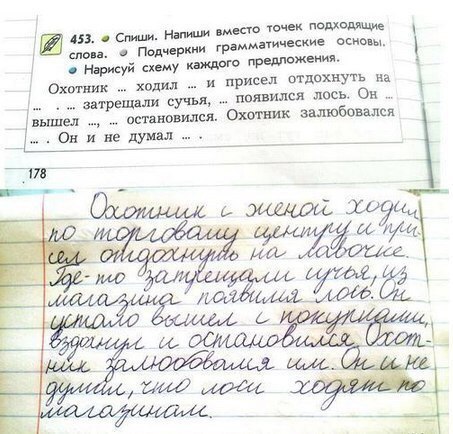 453. Спиши. Напиши вместо точек подходящие
слова. Подчеркни грамматические основы.
Нарисуй схему каждого предложения.
Охотник ... ходил ... и присел отдохнуть на
... . ... затрещали сучья, ... появился лось. Он ...
вышел ..., ... остановился. Охотник залюбовался
... . Он и не думал ... .
178
Охотник с женой ходил
по торговому центру и при-
сел отдохнуть на лавочке.
Где-то затрещали сучья, из
магазина появился лось. Он
устало вышел с покупками,
вздохнул и остановился. Охот-
ник залюбовался им. Он и не
думал, что лоси ходят по
магазинам.